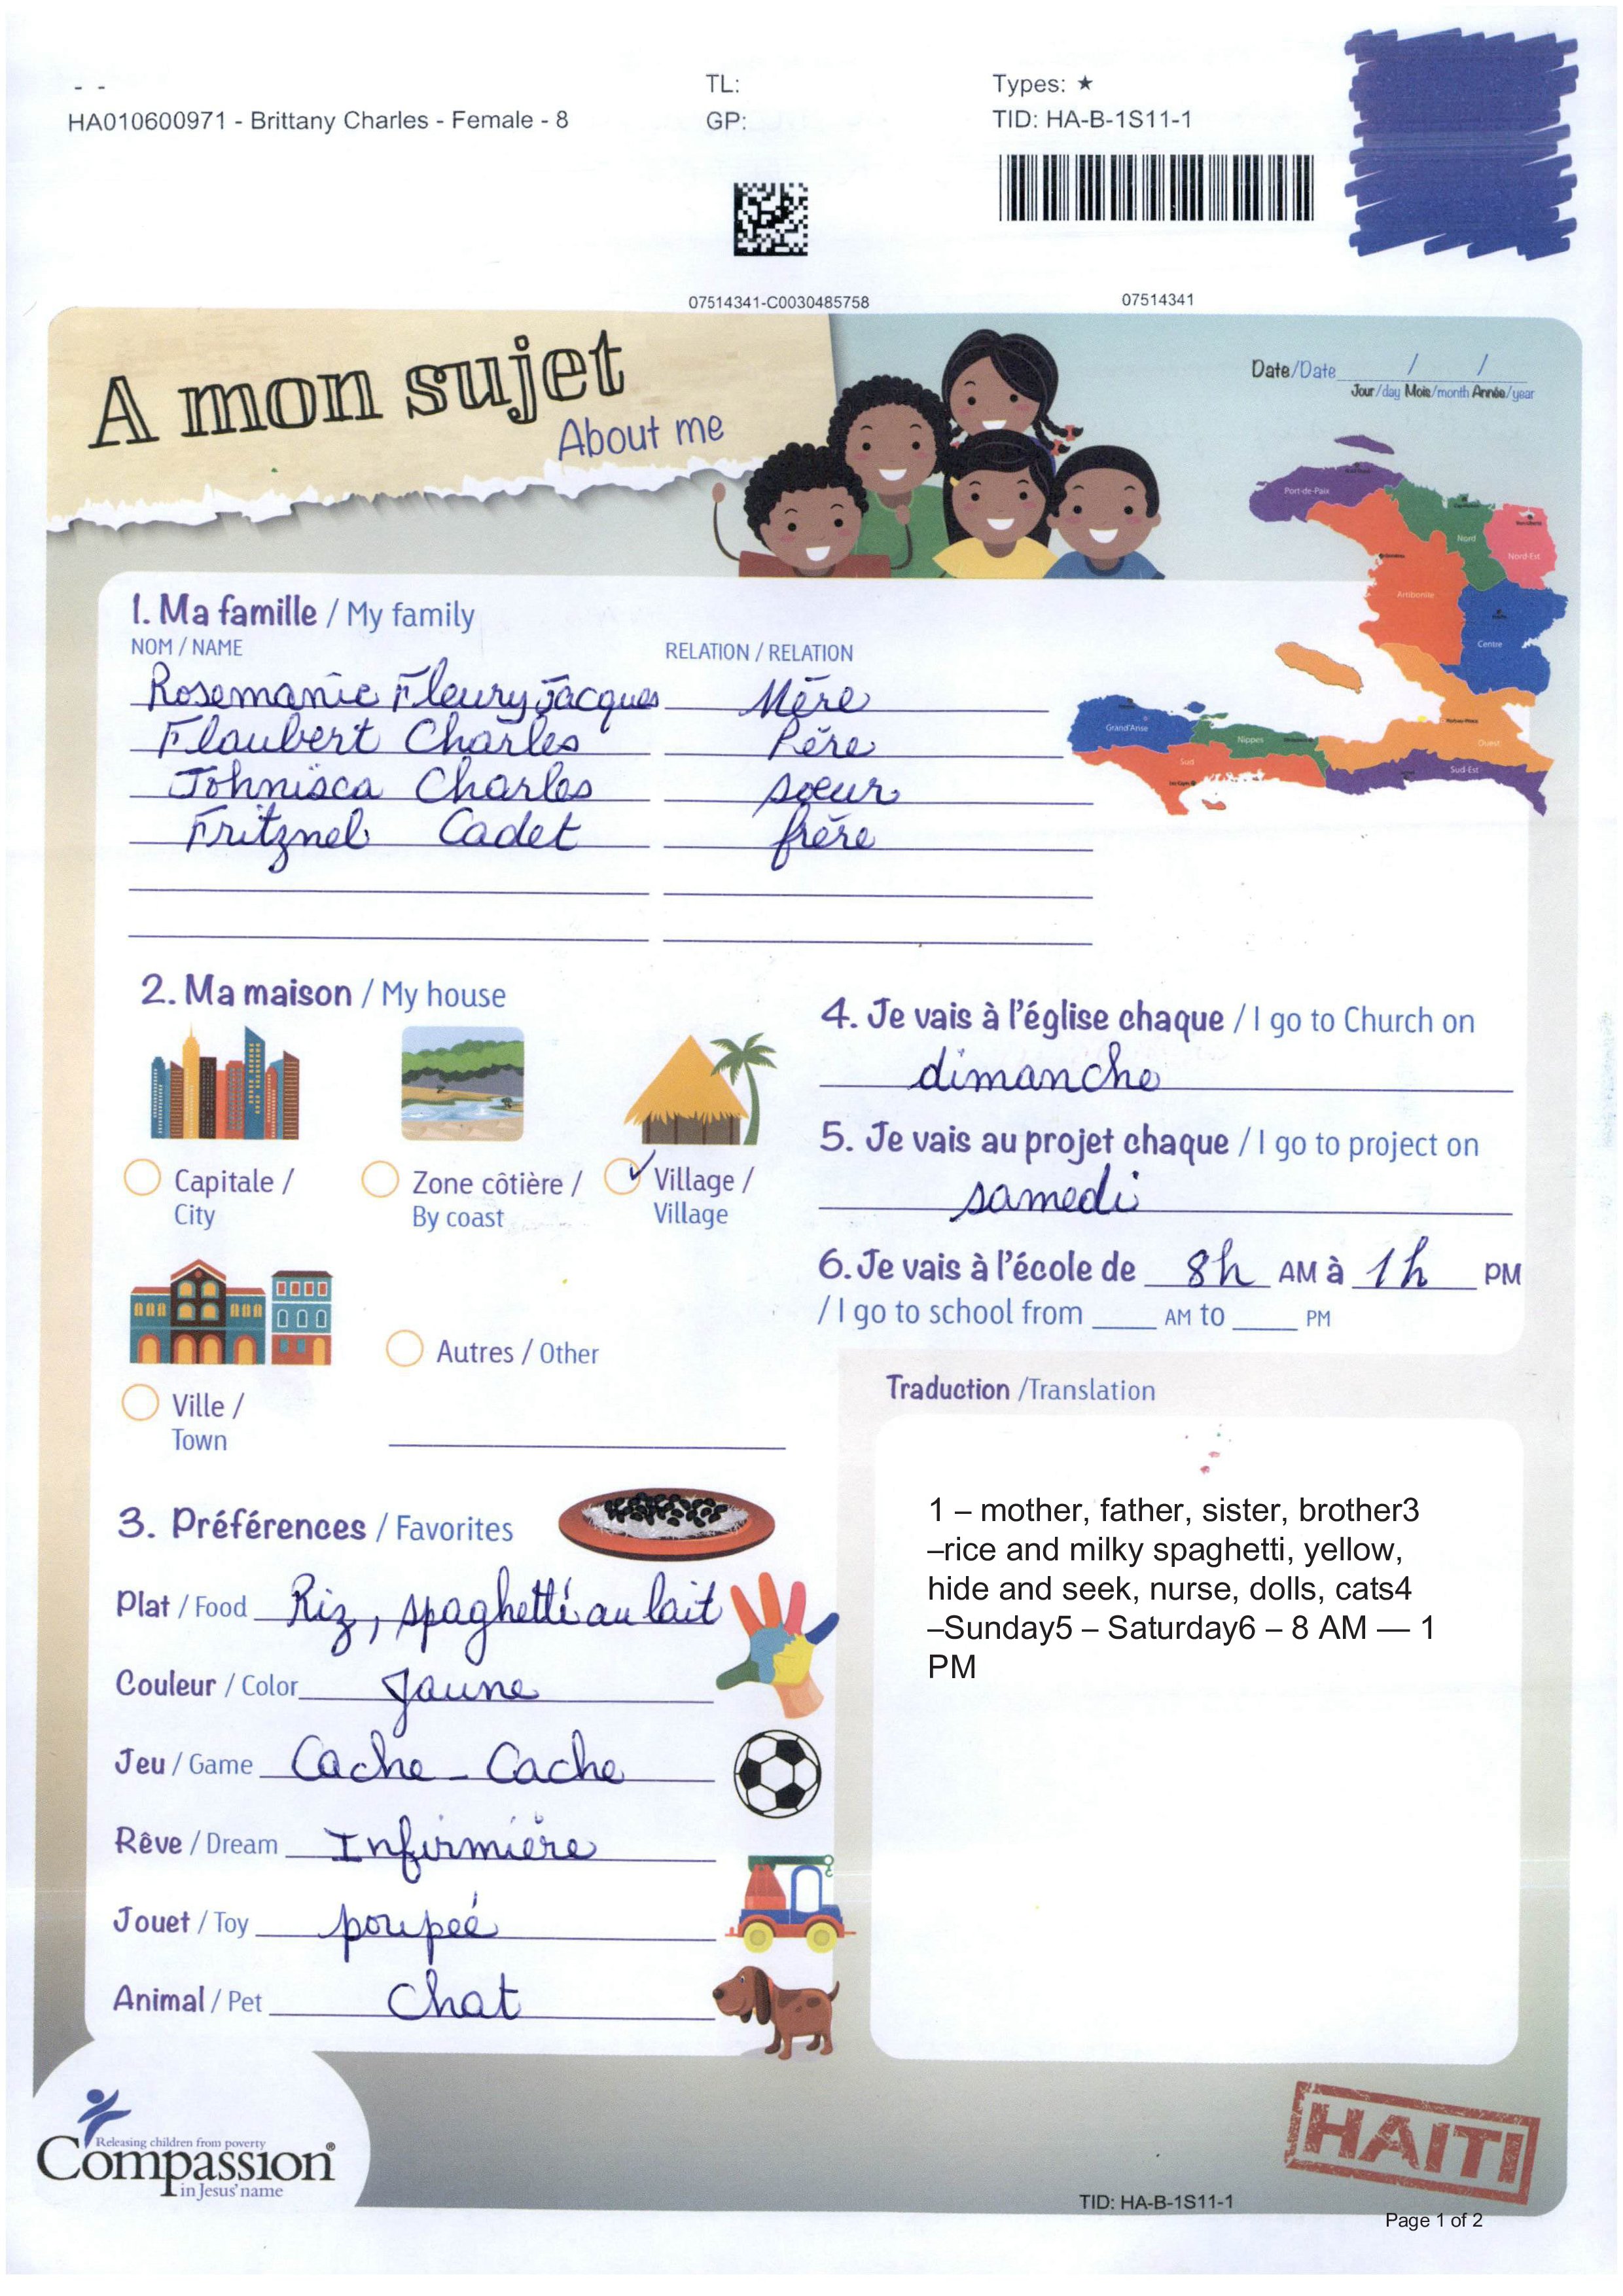 - -
HA010600971 - Brittany Charles - Female - 8
TL:
GP:
Types: ★
TID: HA-B-1S11-1
07514341-C0030485758
07514341
A mon sujet
About me
Date/Date / /
Jour/day Mois/month Année/year
Port-de-Paix
Nord
Nord-Est
Artibonite
Centre
Grand'Anse
Nippes
Ouest
Sud
Sud-Est
1. Ma famille / My family
NOM / NAME RELATION / RELATION
Rosemanie Fleury Jacques Mère
Flaubert Charles Père
Johnisca Charles soeur
Fritznel Cadet frère
2. Ma maison / My house
Capitale /
City
Zone côtière /
By coast
Village /
Village
Ville /
Town
Autres / Other
3. Préférences / Favorites
Plat / Food Riz, spaghetti au lait
Couleur / Color Jaune
Jeu / Game Cache - Cache
Rêve / Dream Infirmière
Jouet / Toy poupeé
Animal / Pet Chat
4. Je vais à l'église chaque / I go to Church on
dimanche
5. Je vais au projet chaque / I go to project on
samedi
6. Je vais à l'école de 8h AM à 1h PM
/ I go to school from ____ AM to ____ PM
Traduction /Translation
1 – mother, father, sister, brother3
–rice and milky spaghetti, yellow,
hide and seek, nurse, dolls, cats4
–Sunday5 – Saturday6 – 8 AM — 1
PM
Releasing children from poverty
Compassion®
in Jesus' name
HAITI
TID: HA-B-1S11-1
Page 1 of 2